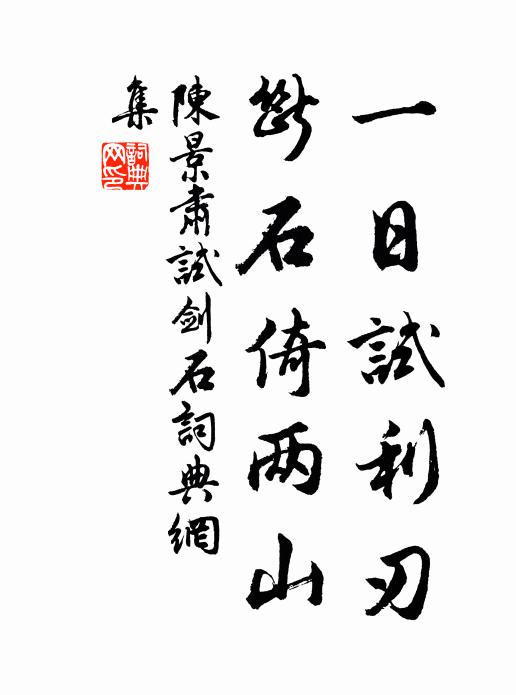 一日試利刃
斷石倚两山
陳景肅試劍石詞典網
集
詞典
网印